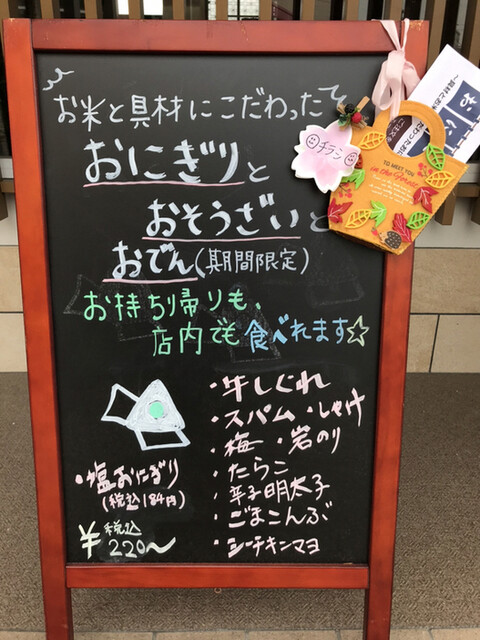 お米と具材にこだわった
おにぎりと
おそうざいと
おでん(期間限定)
お持ち帰りも、
店内でも食べれます☆
・牛しぐれ
・スパム ・しゃけ
・梅 ・岩のり
・たらこ
・辛子明太子
・ごまこんぶ
・シーチキンマヨ
・塩おにぎり
(税込184円)
¥税込220~
チラシ
TO MEET YOU
in the forest